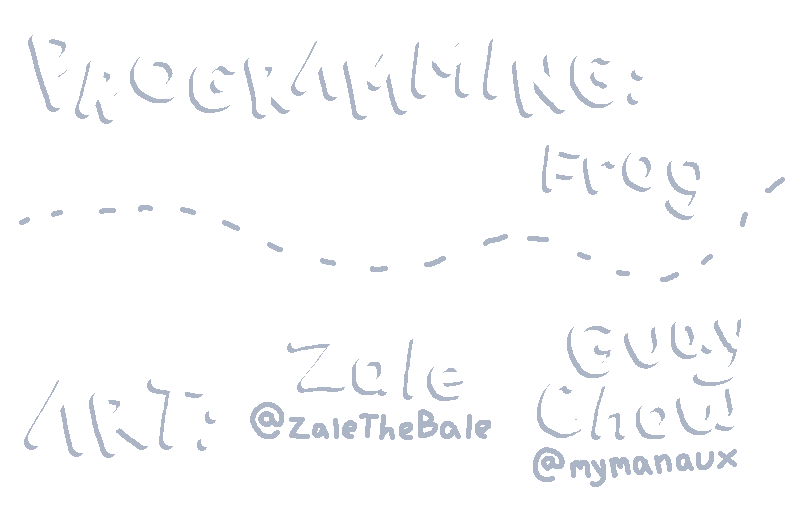 PROGRAMMING:
Frog
ART:
Zale
@ZaleTheBale
Guay
Chow
@mymanaux